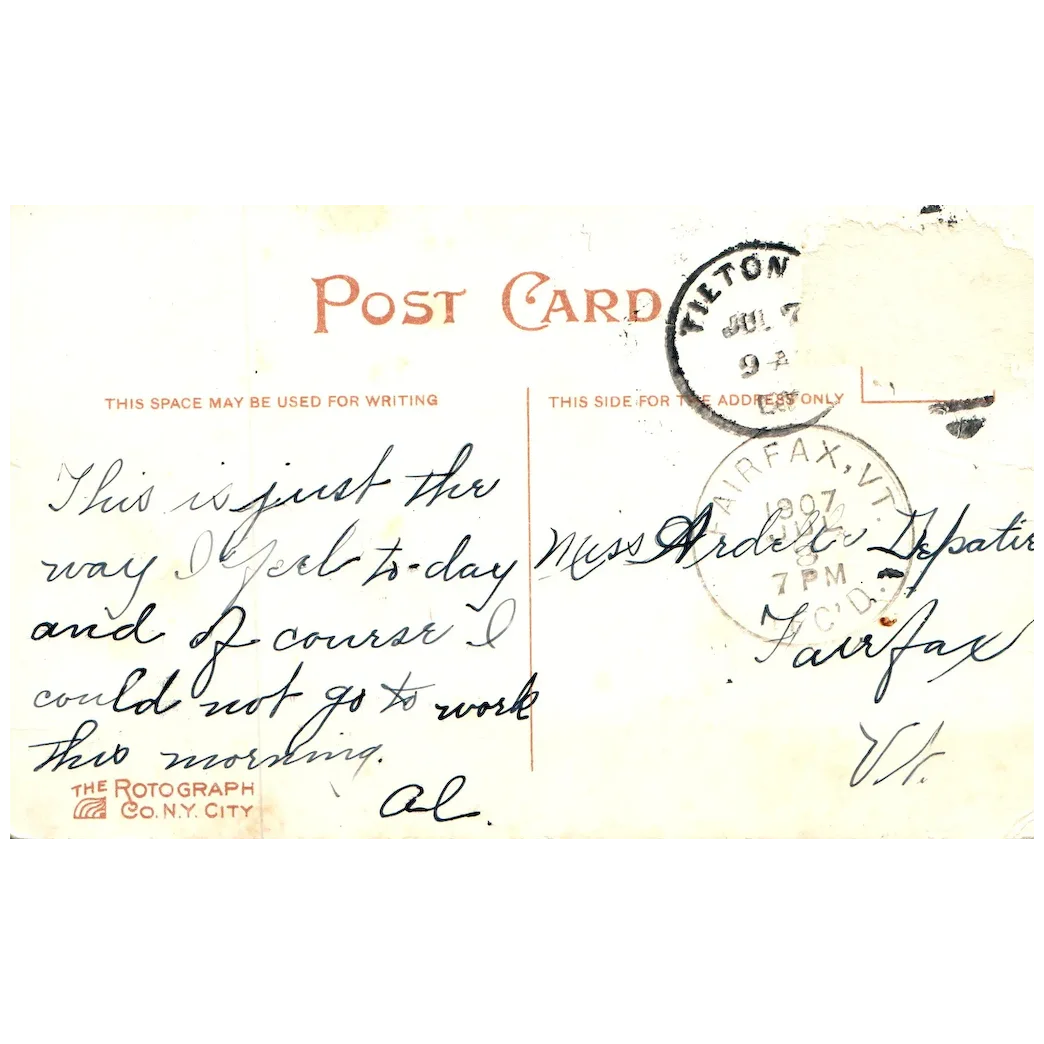 POST CARD
TILTON
JUL 7
9 A
THIS SPACE MAY BE USED FOR WRITING
THIS SIDE FOR THE ADDRESS ONLY
FAIRFAX, VT.
1907
JUL
8
7 PM
REC'D.
This is just the
way I feel to-day
and of course I
could not go to work
this morning.
Al.
Miss Ardelle Depatie
Fairfax
Vt.
THE ROTOGRAPH
CO. N.Y. CITY